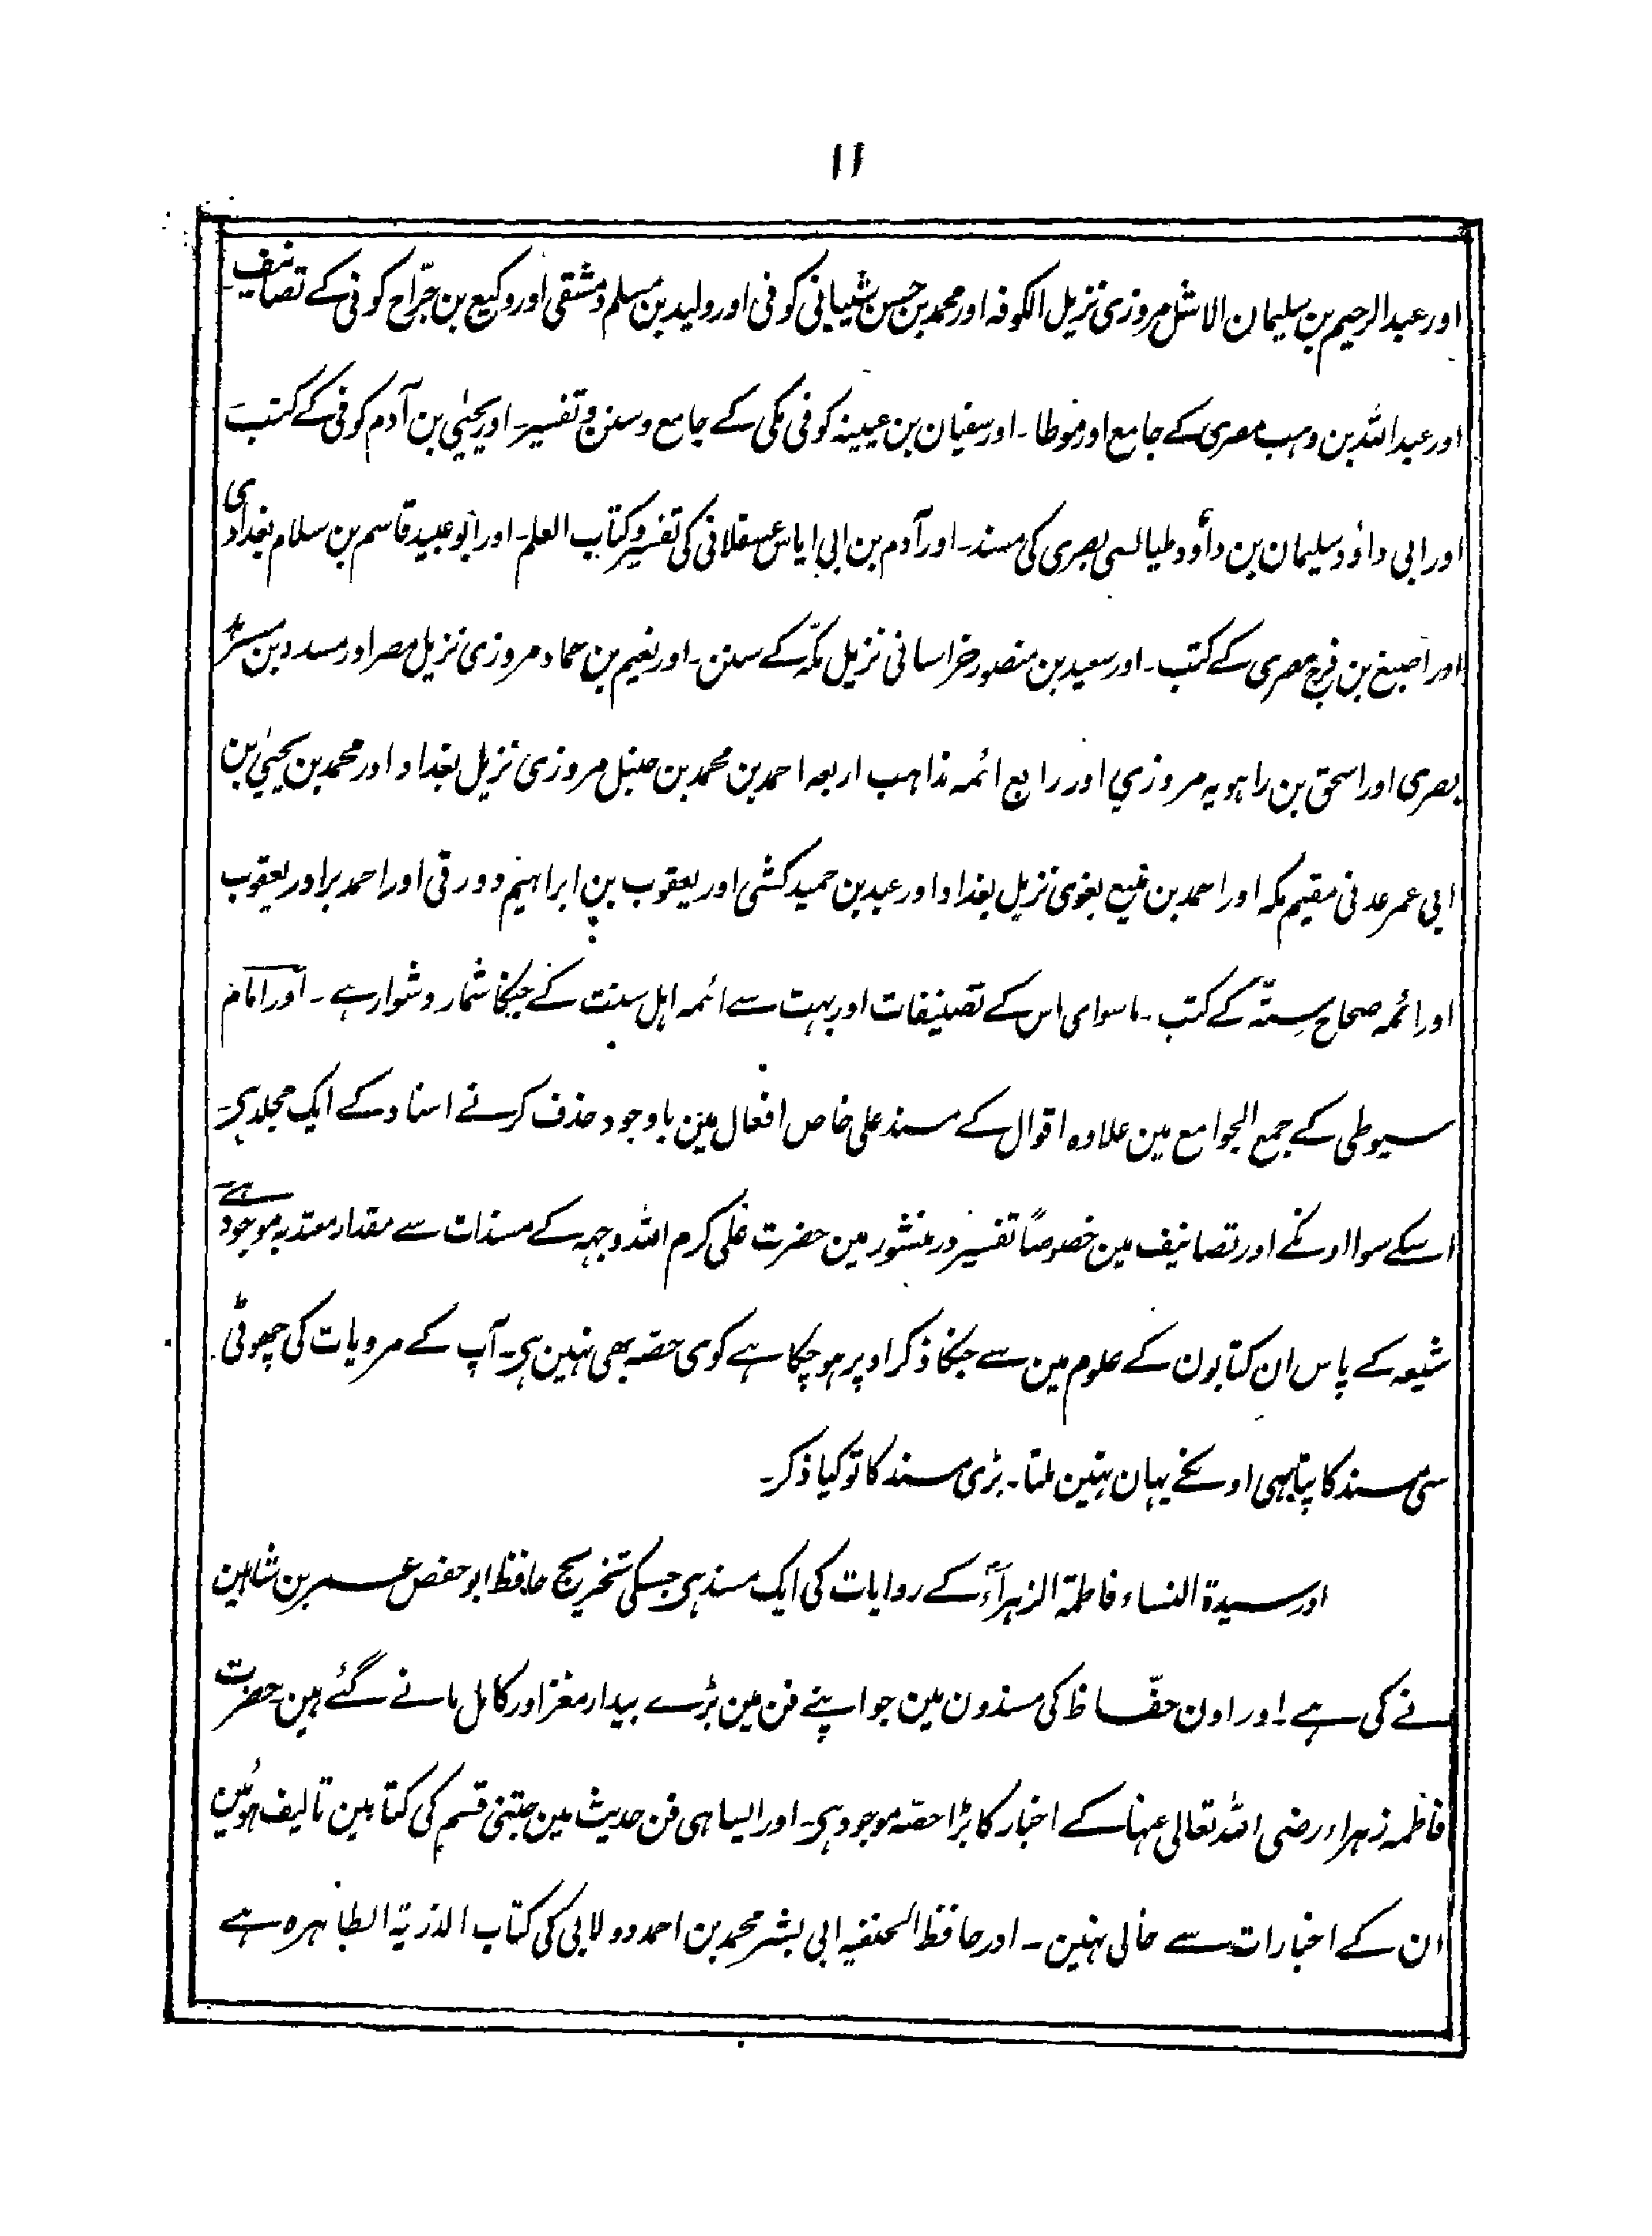 ۱۱
اور عبدالرحیم بن سلیمان الاشل مروزی نزیل الکوفہ اور محمد بن حسن شیبانی کوفی اور ولید بن مسلم دمشقی اور وکیع بن جرّاح کوفی کے تصانیف
اور عبداللہ بن وہب مصری کے جامع اور موطا۔ اور سفیان بن عیینہ کوفی مکی کے جامع و سنن و تفسیر۔ اور یحیٰی بن آدم کوفی کے کتب
اور ابی داؤد سلیمان بن داؤد طیالسی بصری کی مسند۔ اور آدم بن ابی ایاس عسقلانی کی تفسیر و کتاب العلم۔ اور ابو عبید قاسم بن سلام بغدادی
اور اصبغ بن فرج مصری کے کتب۔ اور سعید بن منصور خراسانی نزیل مکّہ کے سنن۔ اور نعیم بن حماد مروزی نزیل مصر اور مسدد بن مسرہد
بصری اور اسحق بن راہویہ مروزی اور رابع ائمہ مذاہب اربعہ احمد بن محمد بن حنبل مروزی نزیل بغداد اور محمد بن یحیٰی بن
ابی عمر عدنی مقیم مکہ اور احمد بن منیع بغوی نزیل بغداد اور عبد بن حمید کشی اور یعقوب بن ابراہیم دورقی اور احمد برادر یعقوب
اور ائمہ صحاح ستّہ کے کتب۔ ماسوای اس کے تصنیفات اور بہت سے ائمہ اہل سنت کے جنکا شمار دشوار ہے۔ اور امام
سیوطی کے جمع الجوامع مین علاوہ اقوال کے مسند علی خاص افعال مین باوجود حذف کرنے اسناد کے ایک مجلد ہی۔
اسکے سوا اونکے اور تصانیف مین خصوصاً تفسیر در منثور مین حضرت علی کرم اللہ وجہہ کے مسندات سے مقدار معتد بہ موجود ہے
شیعہ کے پاس ان کتابون کے علوم مین سے جنکا ذکر اوپر ہو چکا ہے کوی حصہ بھی نہین ہی۔ آپ کے مرویات کی چھوٹی
سی مسند کا پتا بھی اونکے یہان نہین ملتا۔ بڑی مسند کا تو کیا ذکر۔
اور سیدۃ النساء فاطمۃ الزہراءؑ کے روایات کی ایک مسند ہی جسکی تخریج حافظ ابو حفص عمر بن شاہین
نے کی ہے۔ اور اون حفّاظ کی مسندون مین جو اپنے فن مین بڑے بیدار مغز اور کامل مانے گئے ہین حضرت
فاطمہ زہراء رضی اللہ تعالی عنہا کے اخبار کا بڑا حصہ موجود ہی۔ اور ایسا ہی فن حدیث مین جتنی قسم کی کتابین تالیف ہوئین
ان کے اخبارات سے خالی نہین۔ اور حافظ الحنفیہ ابی بشر محمد بن احمد دولابی کی کتاب الذریۃ الطاہرہ ہے